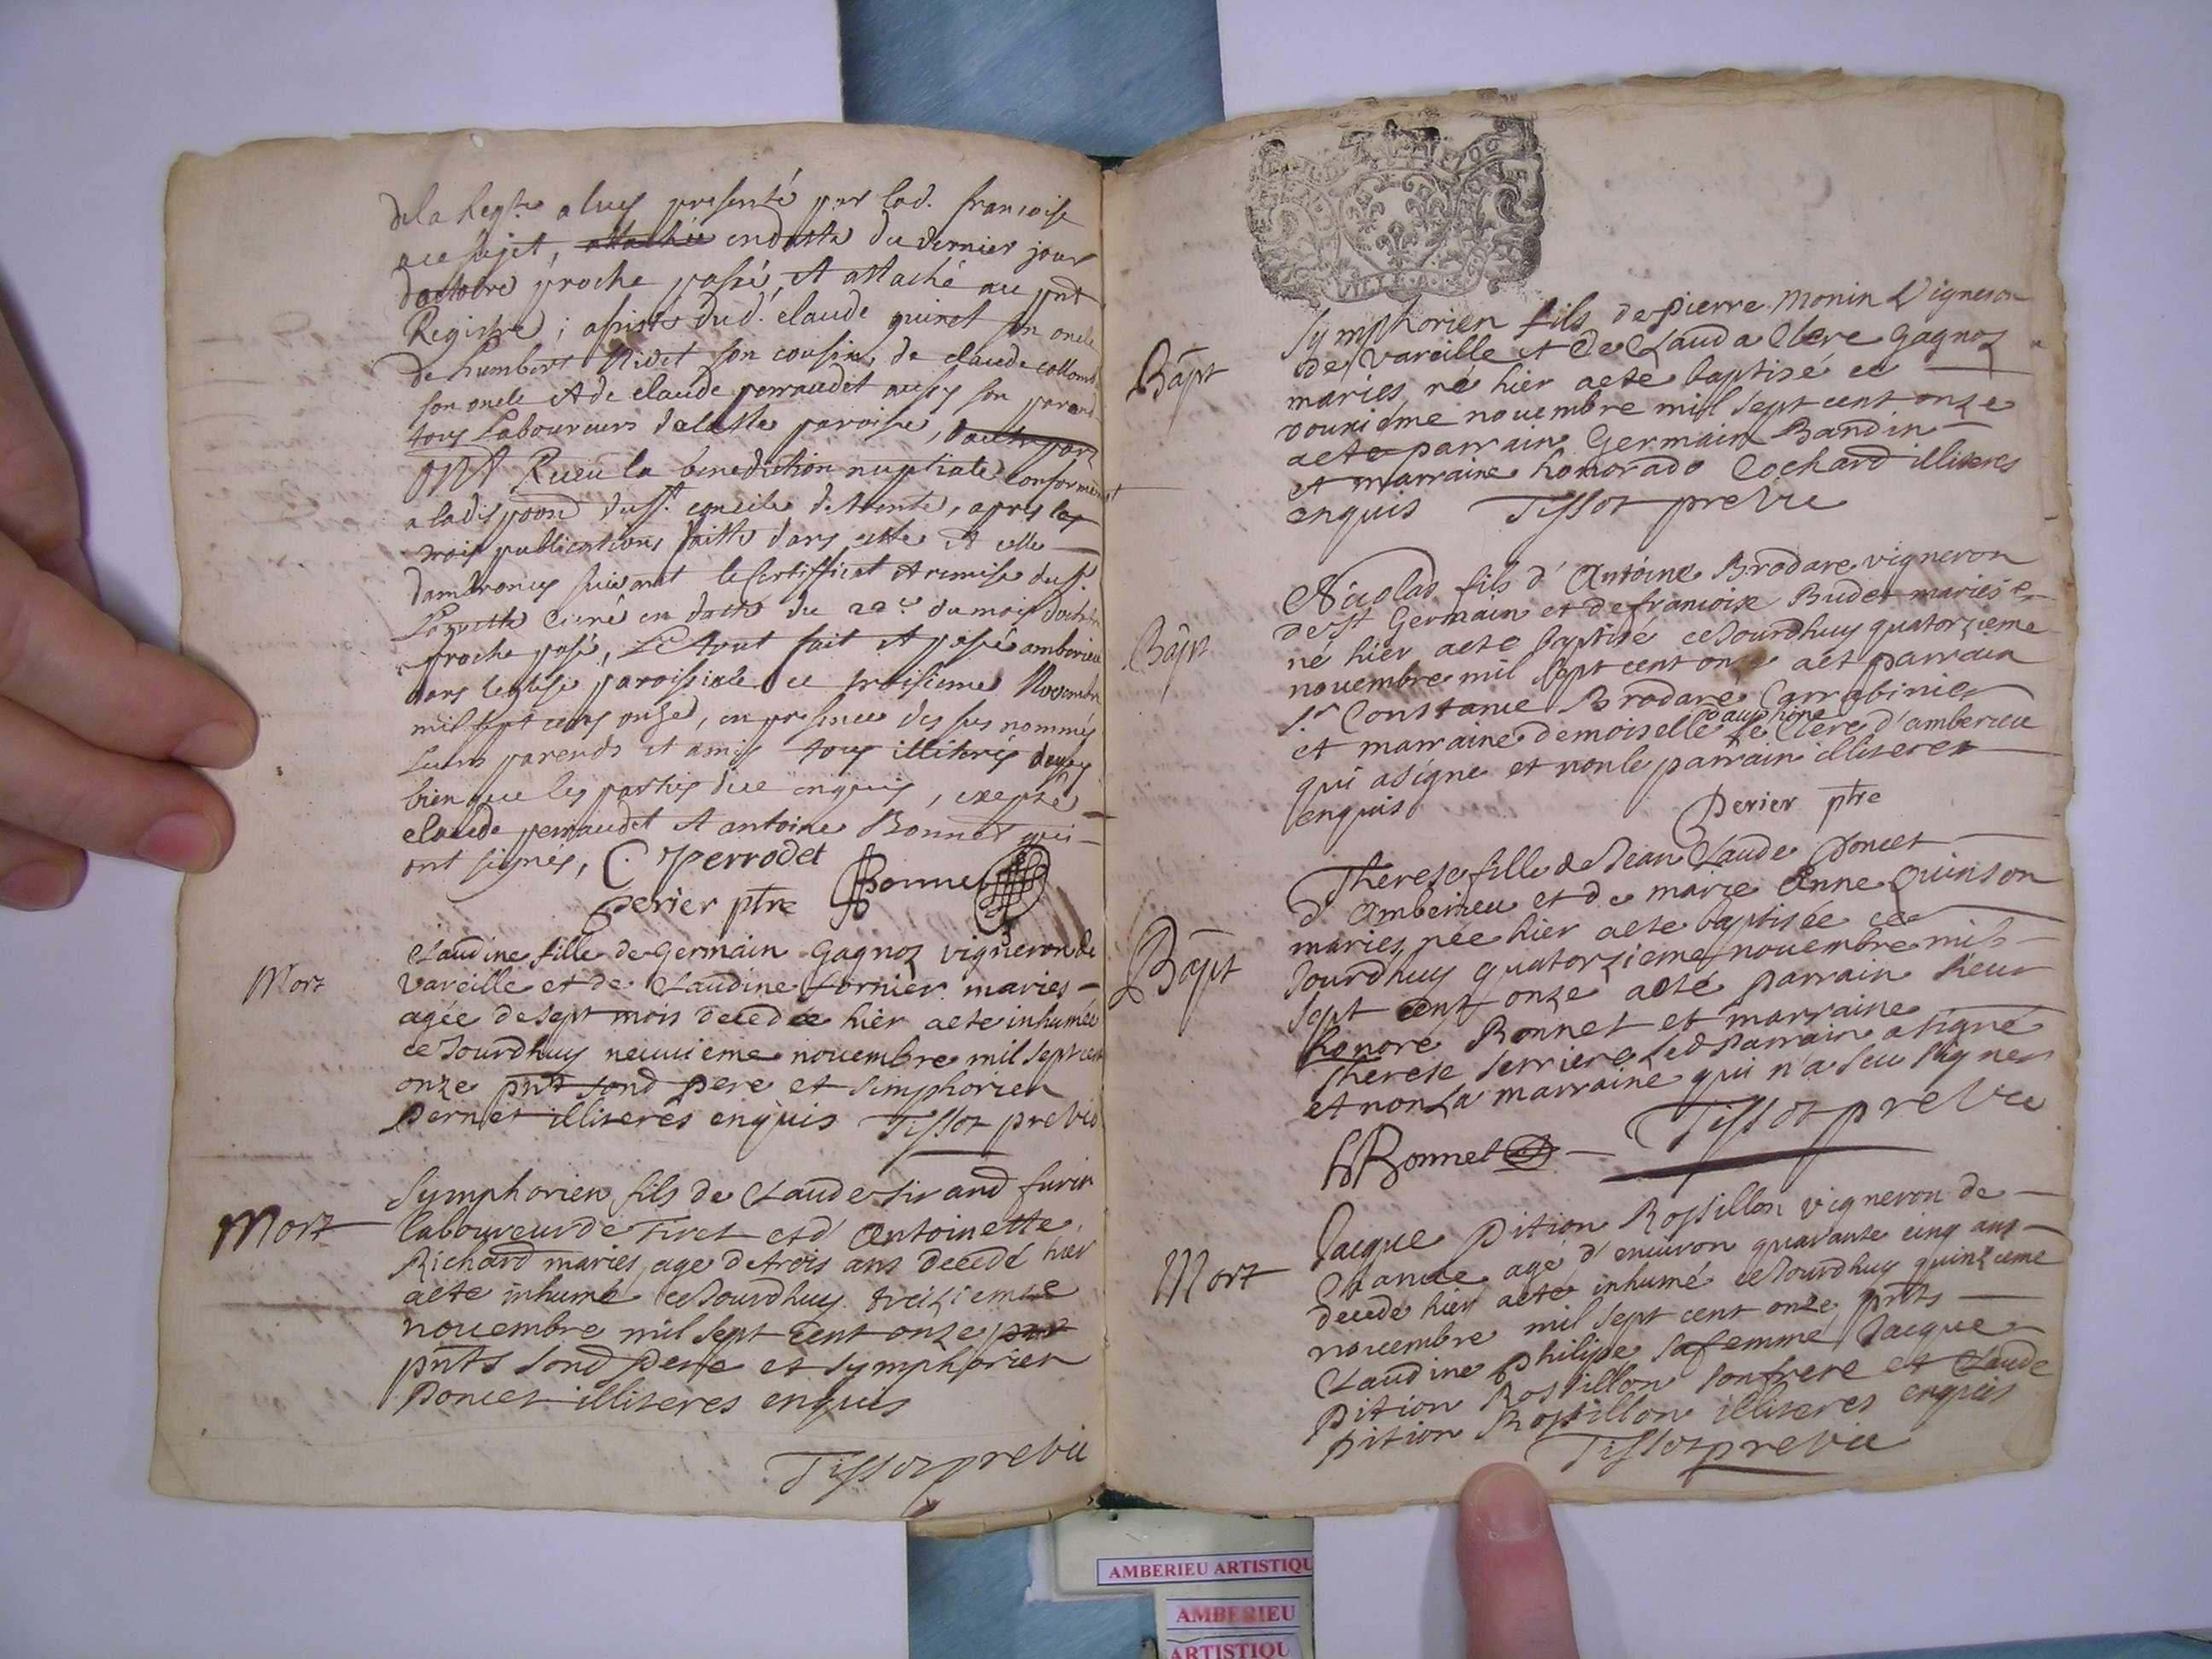 dela Regtre a luy presenté par lad. francoise
au sujet, attachée en datte du dernier jour
doctobre proche passé, et attaché au pnt
Registre; assisté dud. claude quinet son oncle
de humbert Nidet son cousin de claude collomb
son oncle et de claude perraudet aussy son parend
tous Laboureurs de laditte paroisse, dautre part
ont Receu la benediction nuptiale conformement
a la dispoon du st concile de trente, apres les
trois publications faitte dans cette et celle
dambronay suivant le Certifficat et remise du sr
livré en datte du 22e du mois doctobre
proche passé, Le tout fait et passé amberieu
dans leglise paroissiale ce troisieme Novembre
mil sept cens onze, en presence des sus nommés
leurs parends et amis tous illiterés
bien que les parties due enquis, excepté
claude perraudet et antoine Bonnet qui
ont signés, C. Perrodet
Perier ptre Bonnet
Mort
Claudine fille de Germain Gagnoz vigneron de
Vareille et de Claudine Fornier maries
agée de sept mois decedée hier aete inhumée
ce Jourdhuy neuuieme nouembre mil sept cent
onze pnt sond pere et Simphorien
Pernet illiteres enquis Tissot pre Vic
Mort
Symphorien, fils de Claude Sirand furin
laboureur de Tiret et d' Antoinette
Richard maries, age de trois ans decedé hier
aete inhumé ce Jourdhuy treizieme
nouembre mil sept cent onze pnt
pnts sond Pere et Symphorien
Poncet illiteres enquis
Tissot pre Vic
Bapt
Symphorien fils de Pierre Monin Vigneron
de Vareille et de Clauda Clere Gagnoz
maries, né hier aeté baptisé ce
douxiéme nouembre mil sept cent onze
aete parrain Germain Bandin
et marraine honorado Cochard illiteres
enquis Tissot pre Vic
Bapt
Nicolas fils d' Antoine Brodare vigneron
de st Germain et de francoise Budet mariés
né hier aete baptisé ce Jourdhuy quatorzieme
nouembre mil sept cent onze aet parrain
sr Constance Brodare Carrabinier
dauphine
et marraine demoiselle le Clere d'amberieu
qui a signe et non le parrain illiteret
enquis
Perier ptre
Bapt
Therese fille de Jean Claude Poncet
d' Amberieu et de marie Anne Quinson
maries, née hier aete baptisée ce
Jourdhuy quatorzieme nouembre mil
sept cent onze aeté parrain sieur
honoré Bonnet et marraine
Therese Serriere led parrain a signé
et non la marraine qui n'a seu signer
HBonnet Tissot pre Vic
Mort
Jacque Pition Rossillon vigneron de
Chanue agé d'enuiron quarante cinq ans
decede hier aeté inhumé ce Jourdhuy quinzieme
nouembre mil sept cent onze pnts
Claudine Philipe sa femme Jacque
Pition Rossillon son frere et Claude
Pition Rossillon illiteres enquis
Tissot pre Vic
AMBERIEU ARTISTIQU
AMBERIEU
ARTISTIQU